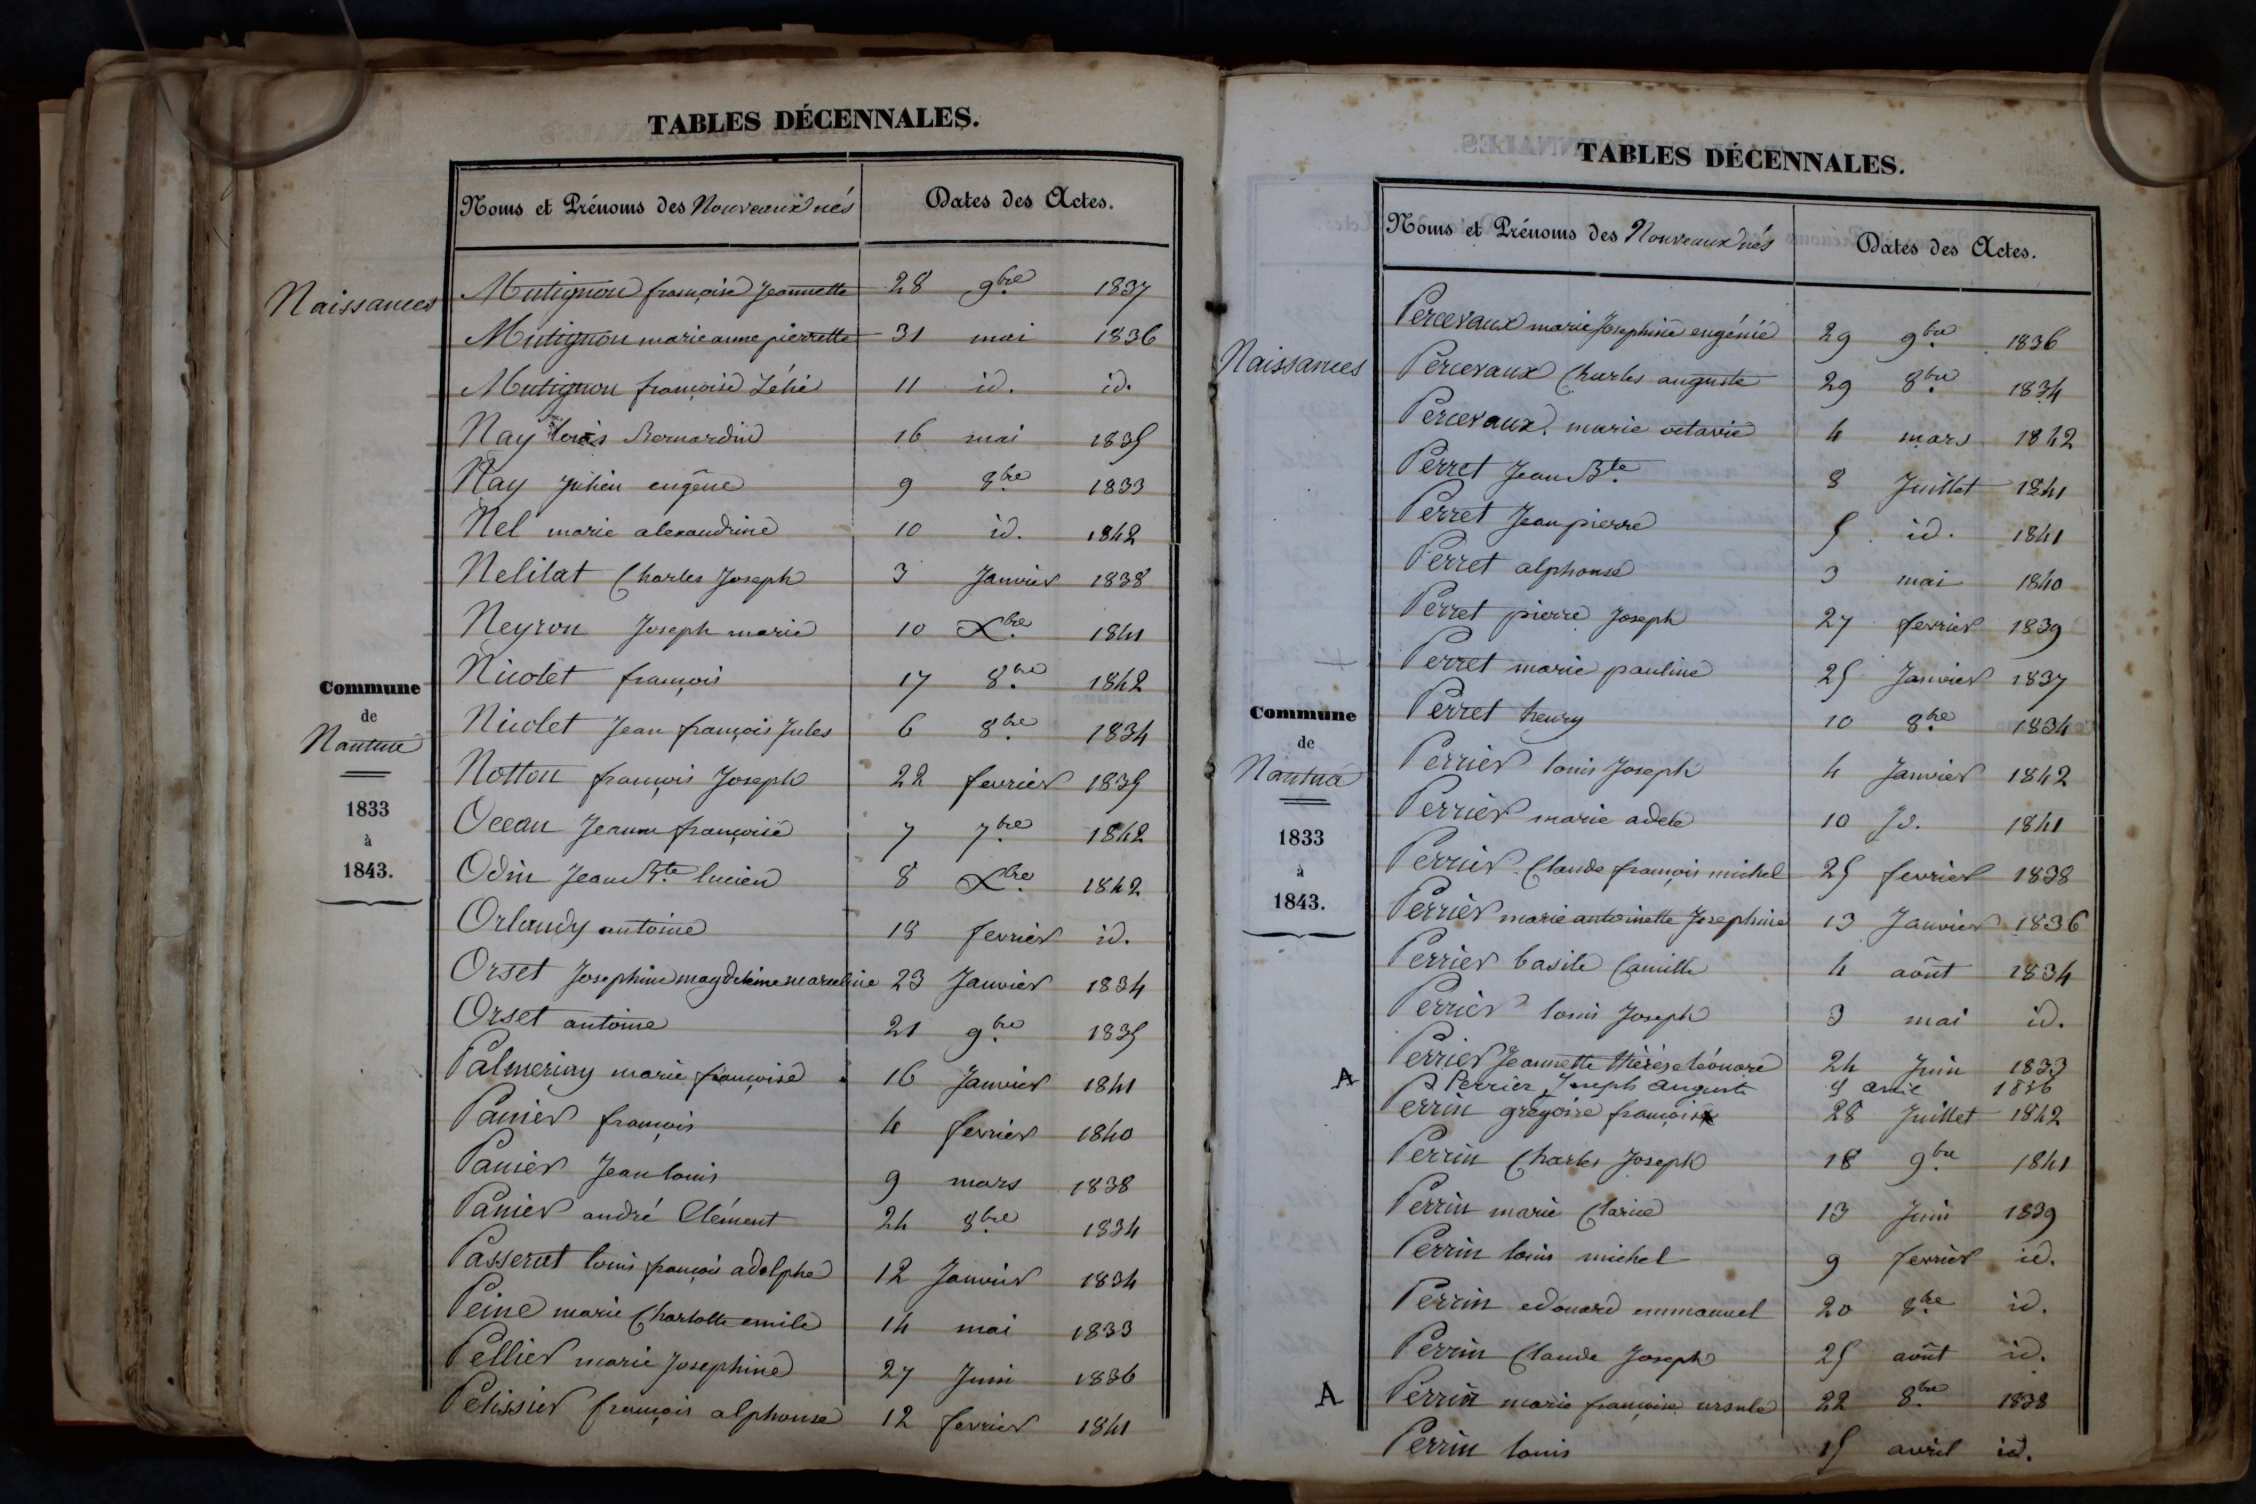 TABLES DÉCENNALES.
Noms et Prénoms des Nouveaux nés Dates des Actes.
Naissances
Mutignon françoise Jeannette 28 9bre 1837
Mutignon marie anne pierrette 31 mai 1836
Mutignon françoise Zélie 11 id. id.
Nay louis Bernardin 16 mai 1835
Nay Julien eugêne 9 8bre 1833
Nel marie alexandrine 10 id. 1842
Nelilat Charles Joseph 3 Janvier 1838
Neyron Joseph marie 10 Xbre 1841
Nicolet françois 17 8bre 1842
Commune
de
Nantua
1833
à
1843.
Nicolet Jean françois Jules 6 8bre 1834
Notton françois Joseph 22 fevrier 1835
Oceau Jeanne françoise 7 7bre 1842
Odin Jean Bte lucien 8 Xbre 1842
Orlandy antoine 18 fevrier id.
Orset Josephine magdeleine marceline 23 Janvier 1834
Orset antoine 21 9bre 1835
Palmeriny marie françoise 16 Janvier 1841
Panier françois 4 fevrier 1840
Panier Jean louis 9 mars 1838
Panier andré Clément 24 8bre 1834
Passerat louis françois adolphe 12 Janvier 1834
Peine marie Charlotte emile 14 mai 1833
Pellier marie Josephine 27 Juin 1836
Pelissier françois alphonse 12 fevrier 1841
TABLES DÉCENNALES.
Noms et Prénoms des Nouveaux nés Dates des Actes.
Naissances
Percevaux marie Josephine eugénie 29 9bre 1836
Percevaux Charles auguste 29 8bre 1834
Percevaux. marie octavie 4 mars 1842
Perret Jean Bte. 8 Juillet 1841
Perret Jean pierre 5 id. 1841
Perret alphonse 3 mai 1840
Perret pierre Joseph 27 fevrier 1839
Perret marie pauline 25 Janvier 1837
Perret henry 10 8bre 1834
Commune
de
Nantua
1833
à
1843.
Perrier louis Joseph 4 Janvier 1842
Perrier marie adele 10 Id. 1841
Perrier Claude françois michel 25 fevrier 1838
Perrier marie antoinette Josephine 13 Janvier 1836
Perrier basile Camille 4 août 1834
Perrier louis Joseph 3 mai id.
Perrier Jeannette thérèse léonore 24 Juin 1833
A Perrier Joseph auguste 1836
Perrin grégoire françois 28 Juillet 1842
Perrin Charles Joseph 18 9bre 1841
Perrin marie Clarice 13 Juin 1839
Perrin louis michel 9 fevrier id.
Perrin edouard emmanuel 20 8bre id.
Perrin Claude Joseph 25 août id.
A Perrin marie françoise ursule 22 8bre 1838
Perrin louis 15 avril id.